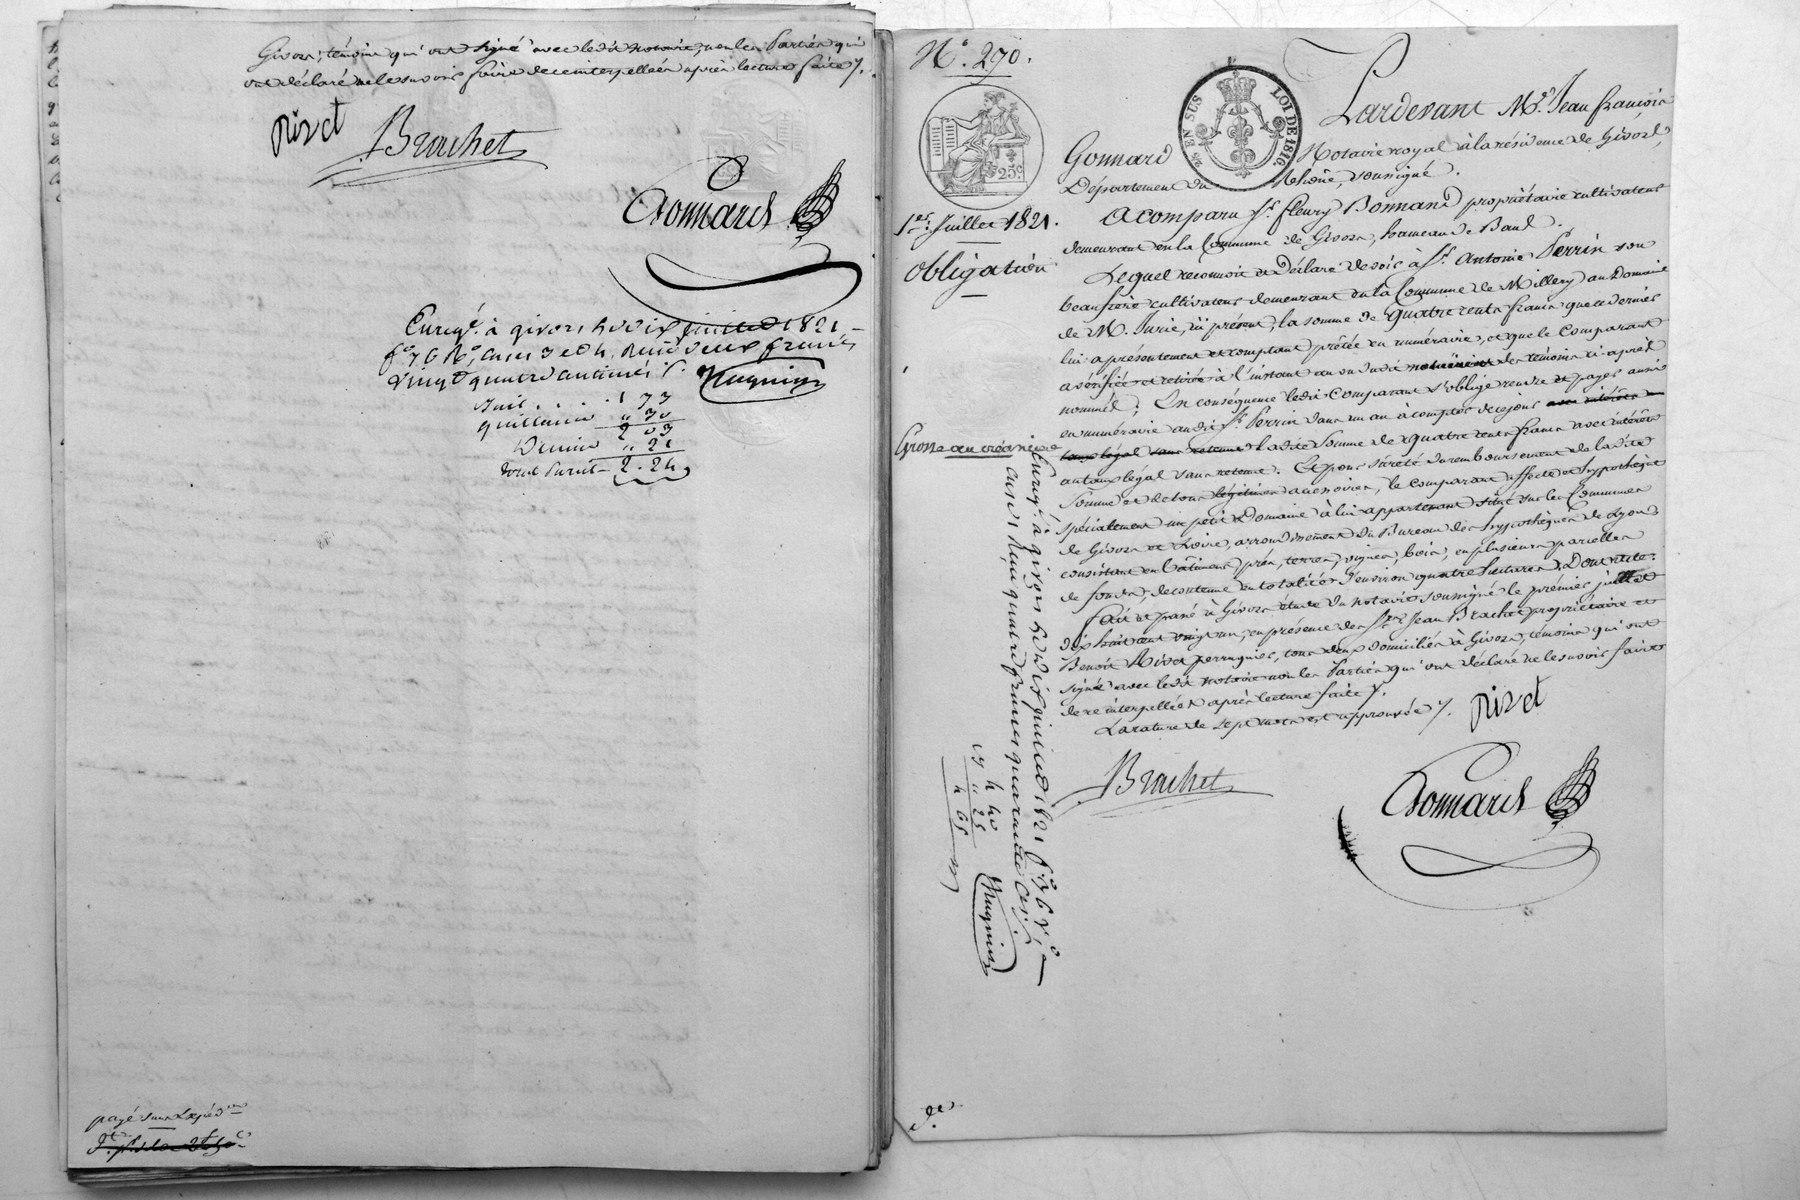 Givors, témoins qui ont signé avec ledit notaire, non les Parties qui
ont déclaré ne le savoir faire de ce interpellées après lecture faite.
Rivet
Brachet
Gonnard
Enregé. à givors le dix juillet 1821
fo. 76 Ro, cases 3 et 4. Reçu deux francs
vingt quatre centimes
1 73
quittance " 30
2 03
Dixmes " 21
2 . 24
payé sans expédon
No. 290.
25c
25 EN SUS LOI DE 1816.
1er. Juillet 1821.
Obligation
Grosse au créancier
Pardevant Me. Jean françois
Gonnard Notaire royal à la résidence de Givors,
Département du Rhône, soussigné.
A comparu Sr. fleury Bonnand propriétaire cultivateur
demeurant en la Commune de Givors, hameau de Bans.
Lequel reconnoit et Déclare devoir à Sr. Antoine Perrin son
beaufrère cultivateur demeurant en la Commune de Millery au Domaine
de M. Jurie, ici présent, la somme de quatre cents francs que ce dernier
lui a présentement et comptant prêtée en numéraire, et que le Comparant
a vérifiée et retirée à l'instant au vu dudit notaire et des témoins ci-après
nommés; En conséquence ledit Comparant s'oblige rendre et payer aussi
en numéraire audit Sr. Perrin dans un an à compter de ce jour avec intérêts au
taux légal sans retenue ladite somme de quatre cents francs avec intérêts
au taux légal sans retenue. Et pour sûreté du remboursement de ladite
somme et de tous légitimes accessoires, le comparant affecte et hypothèque
spécialement un petit Domaine à lui appartenant situé sur les Communes
de Givors et Loire, arrondissement du Bureau des hypothèques de Lyon
consistant en bâtiments, prés, terres, vignes, bois, en plusieurs parcelles
de fonds, de contenue en totalité d'environ quatre hectares. Dont acte.
Fait et passé à Givors étude du notaire soussigné le premier juillet
dix huit cent vingt un, en présence des Srs. Jean Brachet propriétaire et
Benoit Rivet perruquier, tous deux domiciliés à Givors, témoins qui ont
signé avec ledit notaire non les Parties qui ont déclaré ne le savoir faire
de ce interpellées après lecture faite.
La rature de sept mots est approuvée.
Rivet
Brachet
Gonnard
Enregé. à givors le dix juillet 1821 fo. 76 Ro,
case 1. Reçu quatre francs quarante ces.
4 40
" 25
4 65